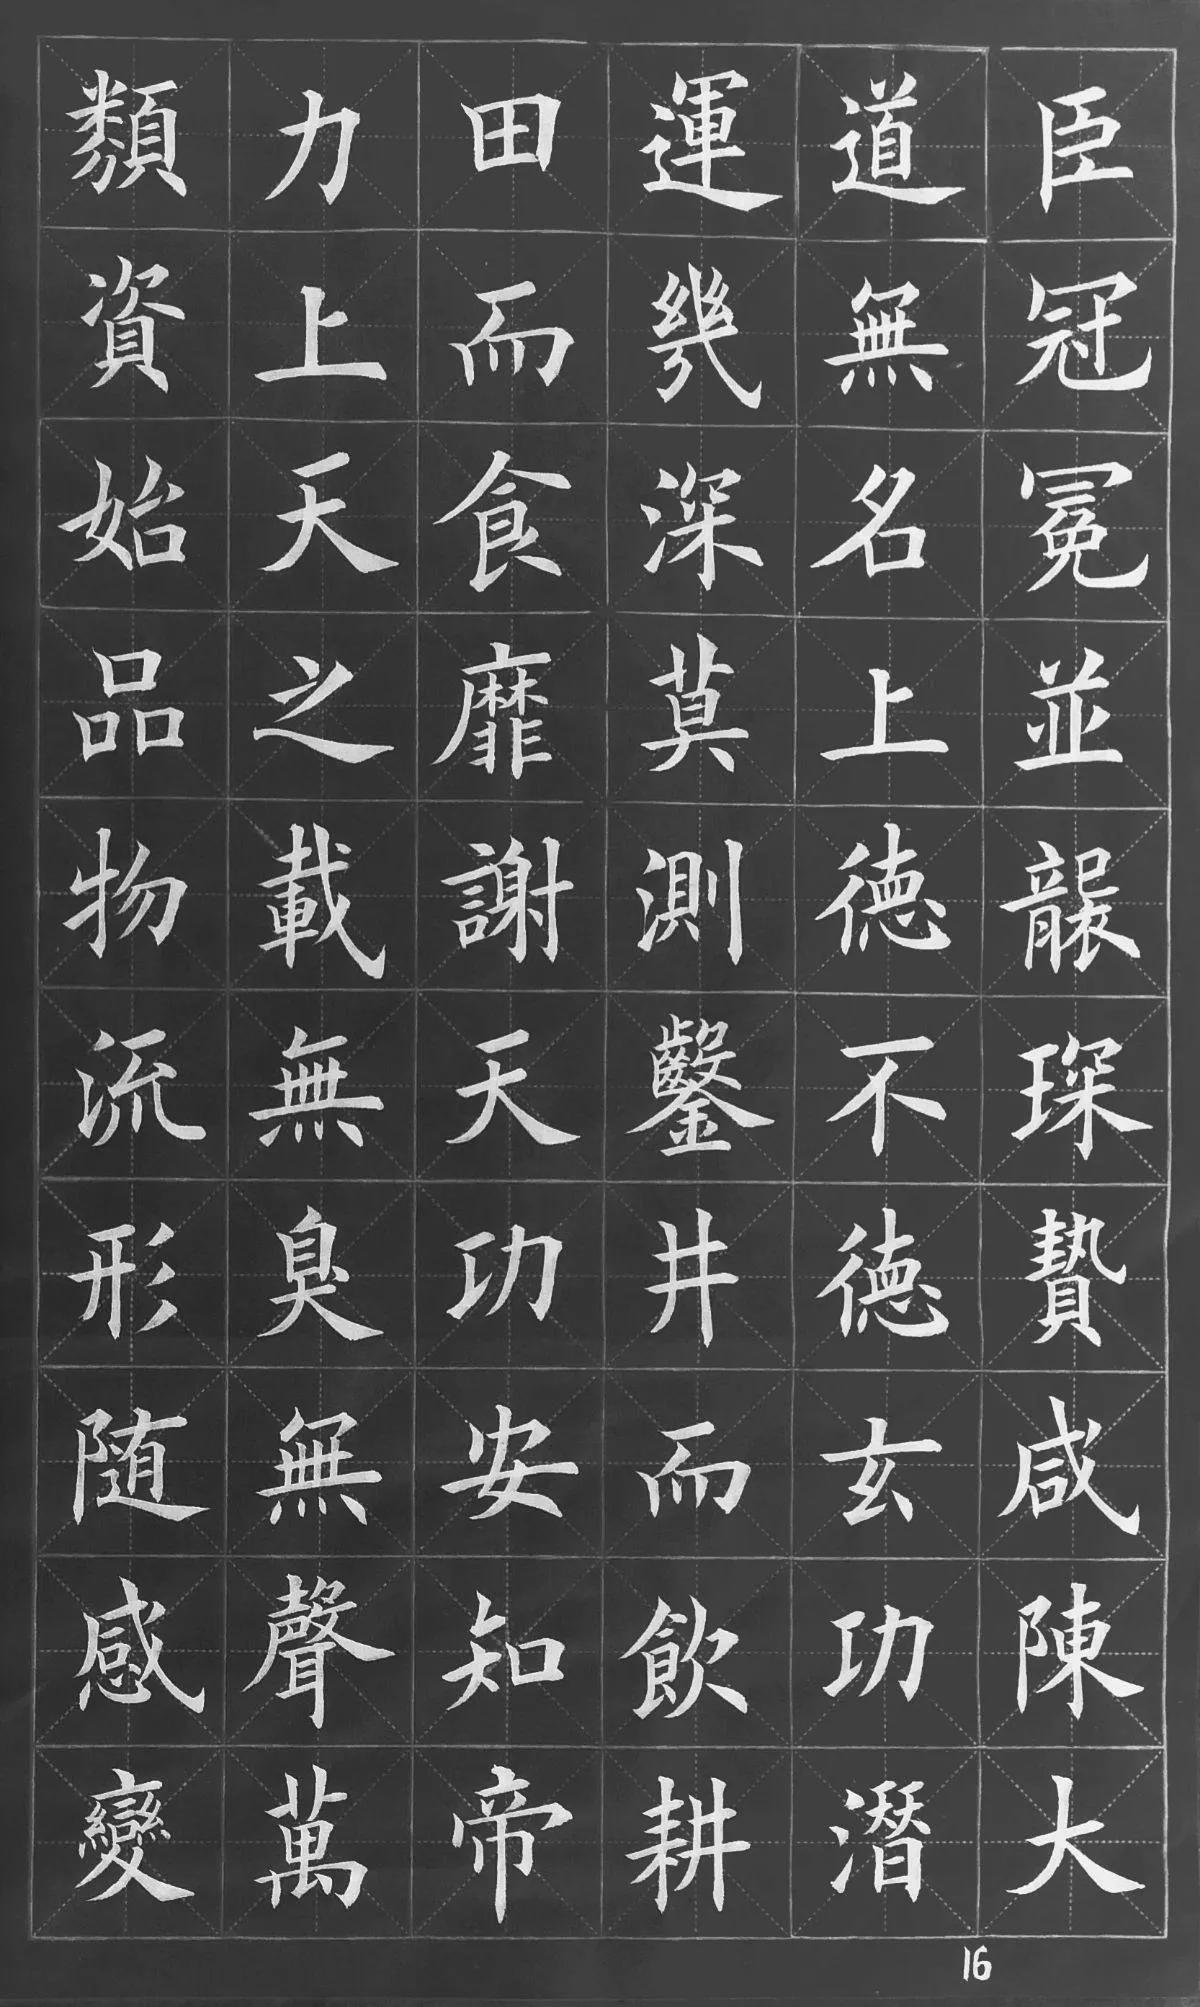 臣冠冕並襲琛贄咸陳大
道無名上德不德玄功潛
運幾深莫測鑿井而飲耕
田而食靡謝天功安知帝
力上天之載無臭無聲萬
類資始品物流形随感變
16